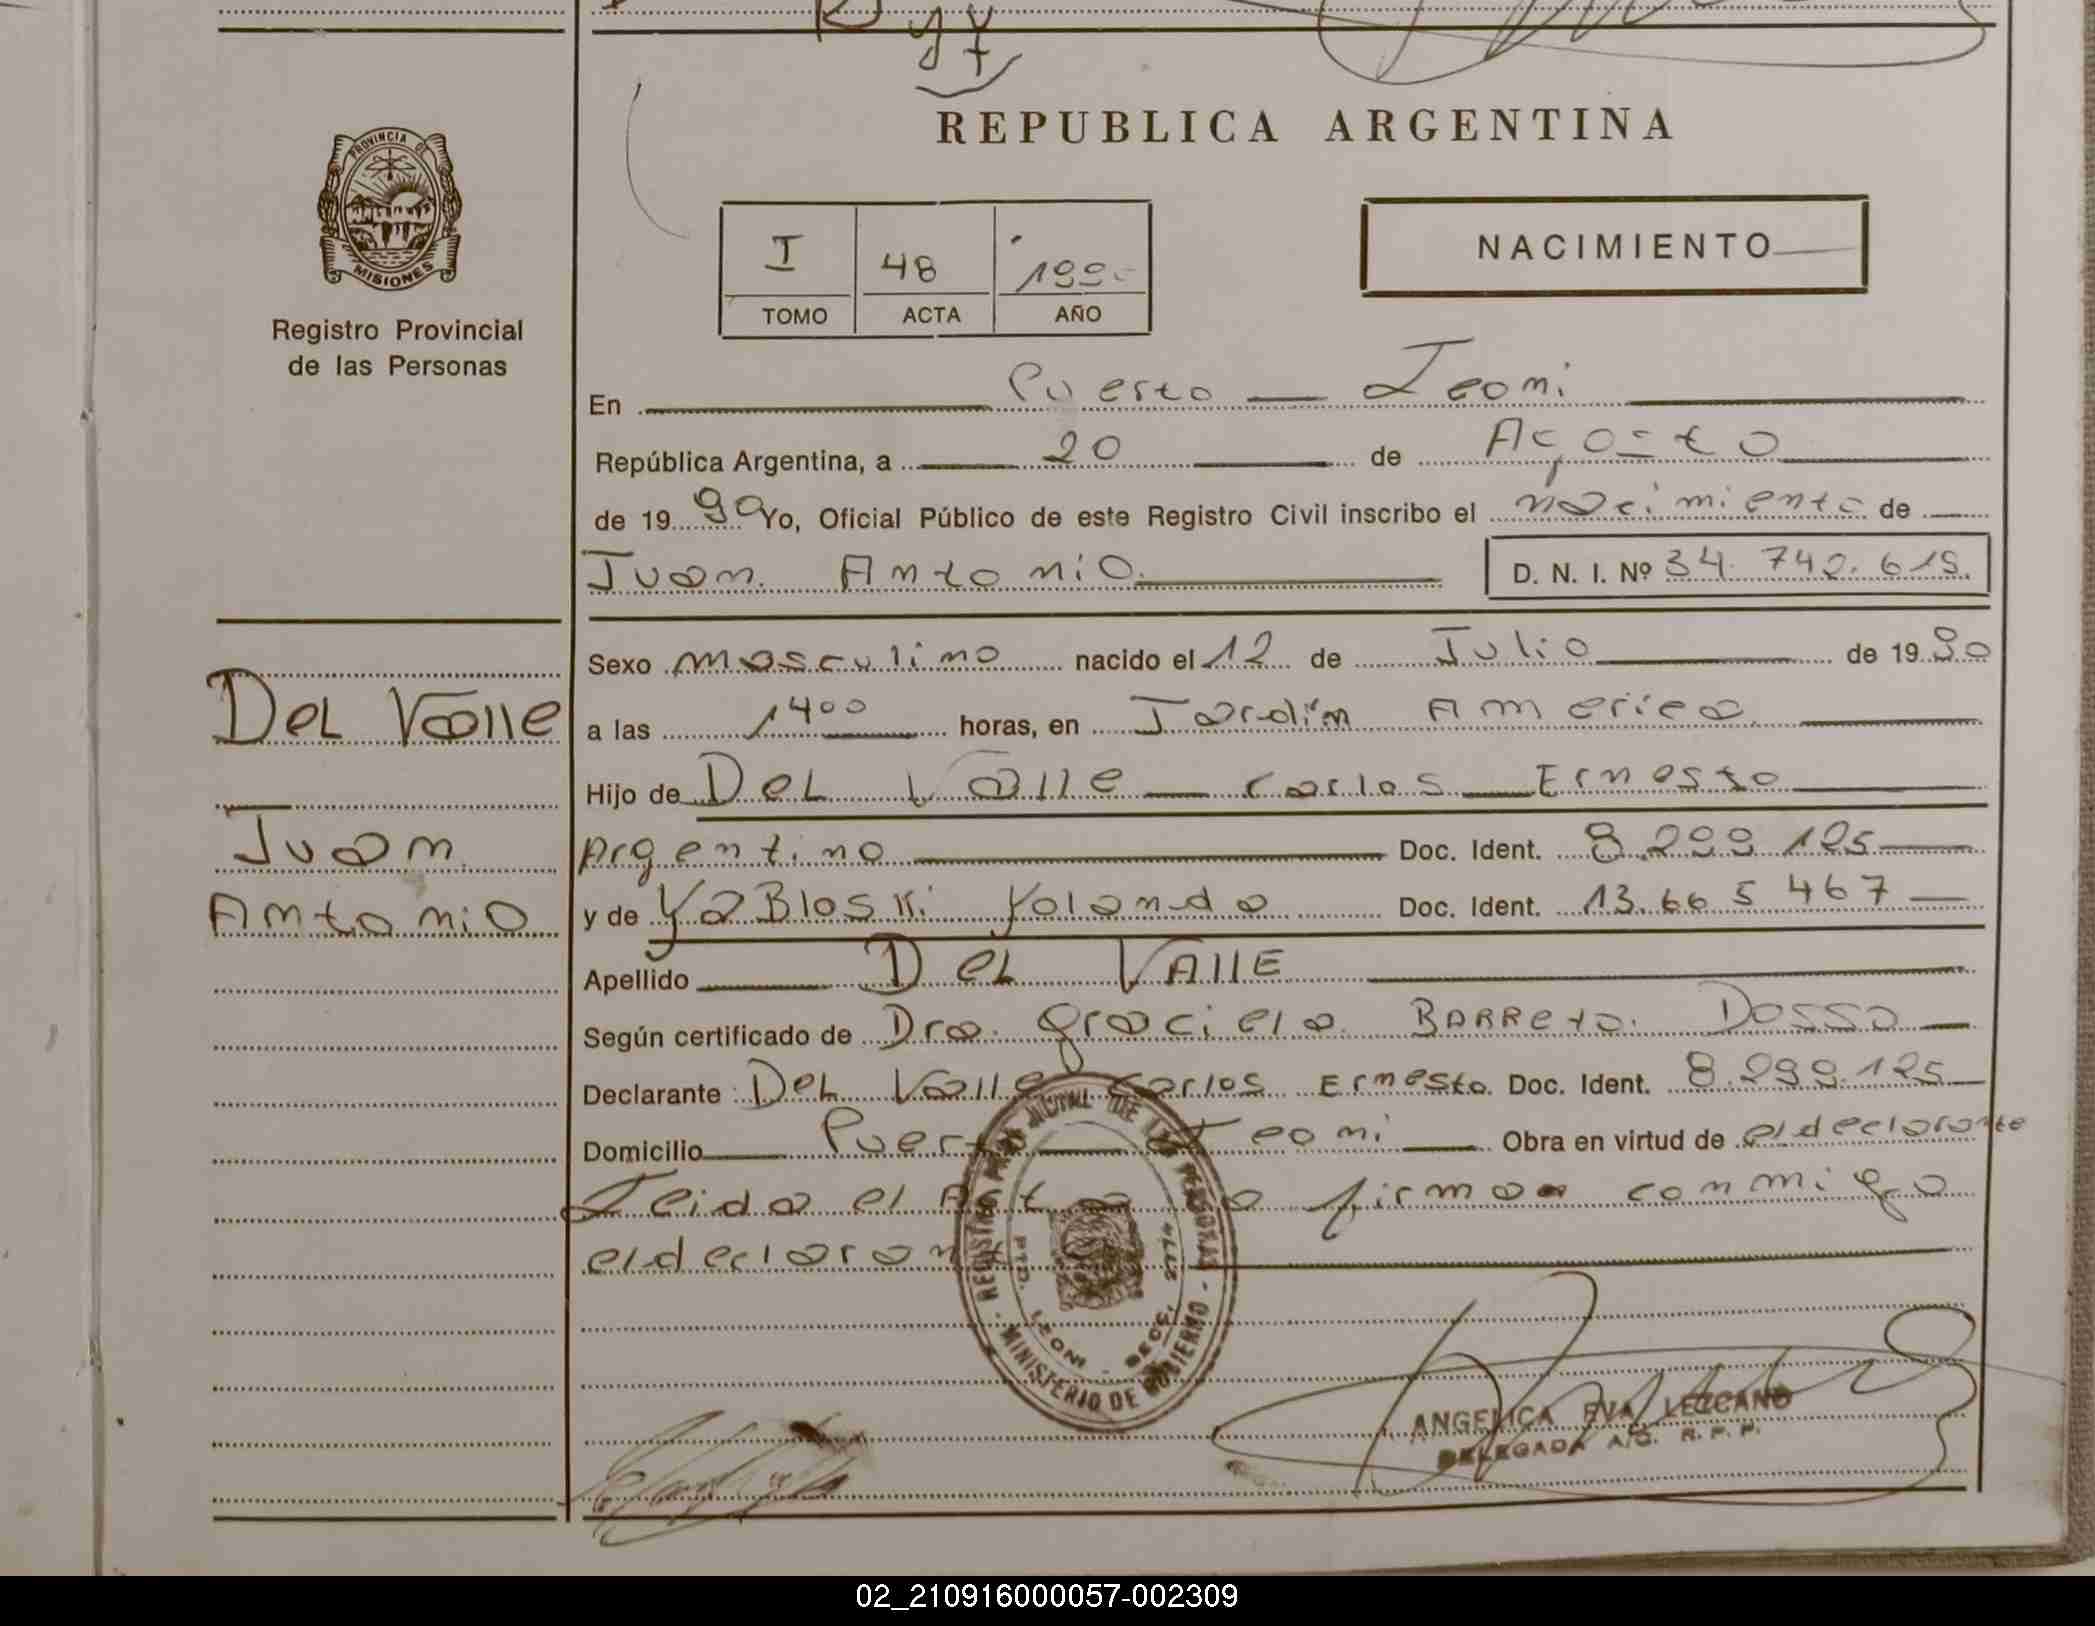 REPUBLICA ARGENTINA
PROVINCIA DE
MISIONES
Registro Provincial
de las Personas
I 48 199
TOMO ACTA AÑO
NACIMIENTO
En Puerto Leoni
República Argentina, a 20 de Agosto
de 19 90 Yo, Oficial Público de este Registro Civil inscribo el nacimiento de
Juan Antonio D. N. I. Nº 34.742.615.
Del Valle
Juan
Antonio
Sexo masculino nacido el 12 de Julio de 19 90
a las 1400 horas, en Jardín America
Hijo de Del Valle Carlos Ernesto
Argentino Doc. Ident. 8.299.125
y de YaBloski Yolanda Doc. Ident. 13.665 467
Apellido Del VAllE
Según certificado de Dra. graciela BARReto. Dosso
Declarante Del Valle Carlos Ernesto. Doc. Ident. 8.299.125
Domicilio Puerto Leoni Obra en virtud de el declarante
Leida el Acta la firma conmigo
el declarante
REGISTRO PROVINCIAL DE LAS PERSONAS - MINISTERIO DE GOBIERNO -
PTO. LEONI - SECC. 2774
ANGELICA EVA LEZCANO
DELEGADA A/C. R. P. P.
02_210916000057-002309